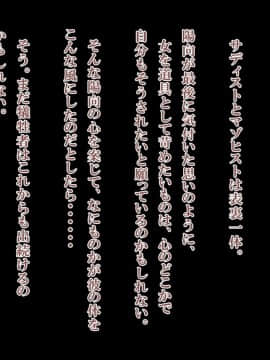 サディストとマゾヒストは表裏一体。
陽向が最後に気付いた思いのように、
女を道具として苛めたいものは、心のどこかで
自分もそうされたいと願っているのかもしれない。
そんな陽向の心を案じて、なにものかが彼の体を
こんな風にしたのだとしたら‥‥‥
そう。まだ犠牲者はこれからも出続けるの
かもしれない。